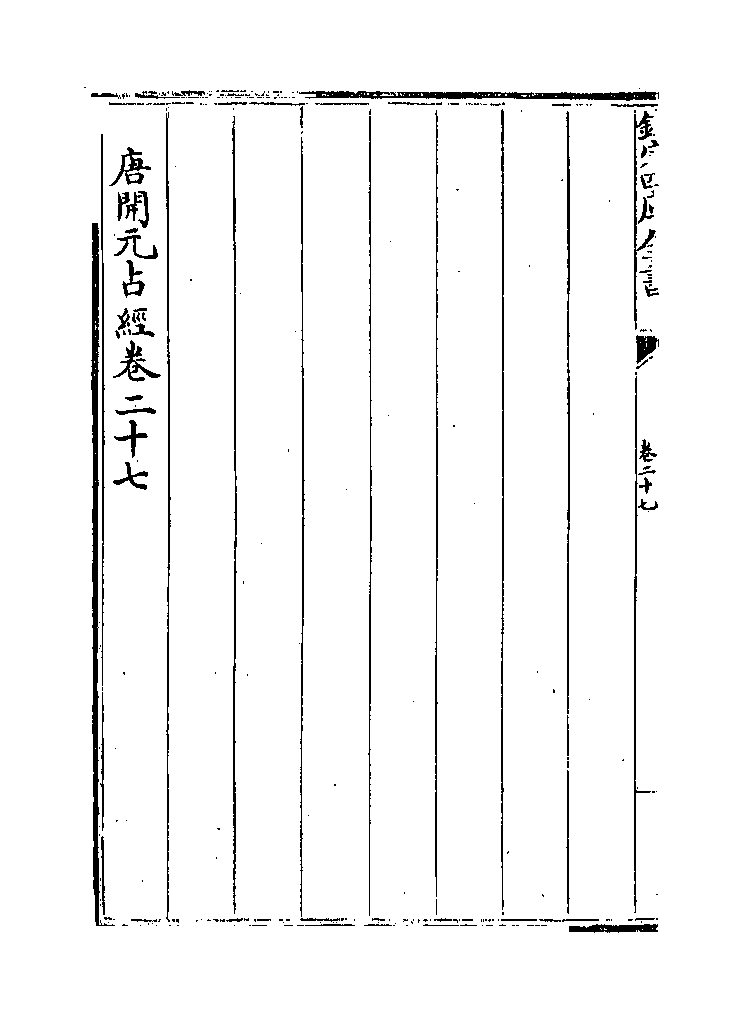 欽定四庫全書
卷二十七
唐開元占經卷二十七